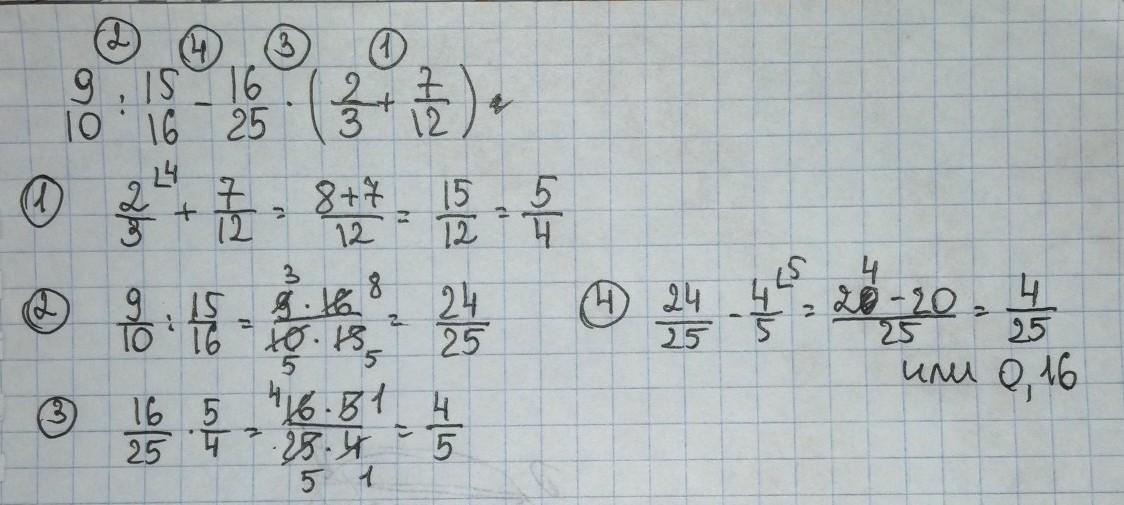 ② ④ ③ ①
9/10 : 15/16 - 16/25 · (2/3 + 7/12)
① 2/3 ∟4 + 7/12 = 8+7/12 = 15/12 = 5/4
② 9/10 : 15/16 = 9 3 · 16 8/10 5 · 15 5 = 24/25
④ 24/25 - 4/5 ∟5 = 24-20/25 = 4/25
или 0,16
③ 16/25 · 5/4 = 4 16 · 5 1/25 5 · 4 1 = 4/5